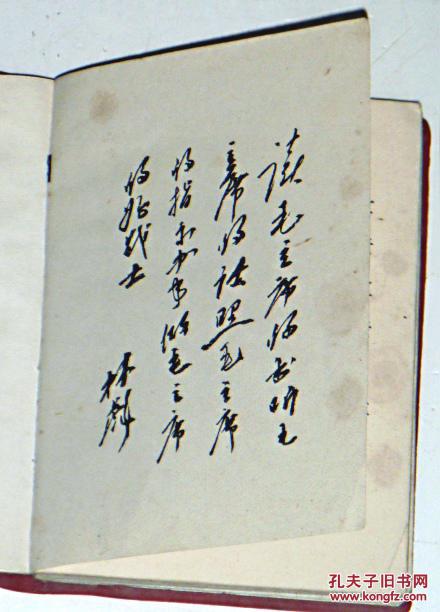 读毛主席的书听毛
主席的话照毛主席
的指示办事做毛主席
的好战士
林彪
孔夫子旧书网
www.kongfz.com